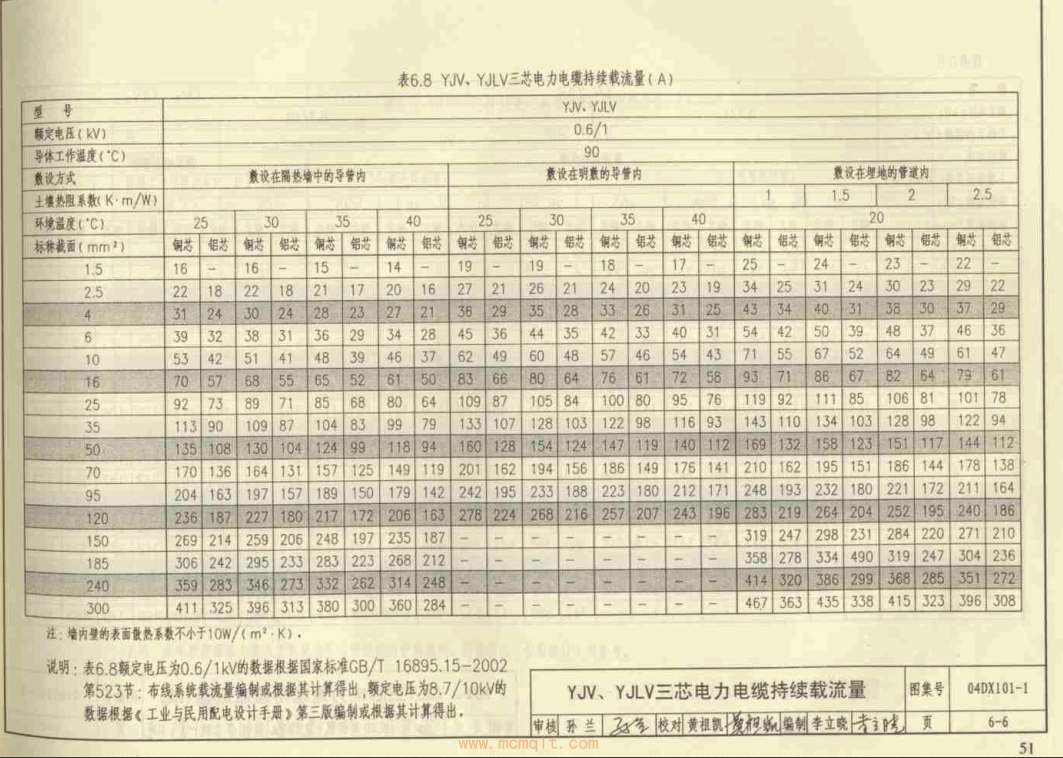 表6.8 YJV、YJLV三芯电力电缆持续载流量(A)
型 号 YJV、YJLV
额定电压(kV) 0.6/1
导体工作温度(°C) 90
敷设方式 敷设在隔热墙中的导管内 敷设在明敷的导管内 敷设在埋地的管道内
土壤热阻系数(K·m/W) 1 1.5 2 2.5
环境温度(°C) 25 30 35 40 25 30 35 40 20
标称截面(mm²) 铜芯 铝芯 铜芯 铝芯 铜芯 铝芯 铜芯 铝芯 铜芯 铝芯 铜芯 铝芯 铜芯 铝芯 铜芯 铝芯 铜芯 铝芯 铜芯 铝芯 铜芯 铝芯 铜芯 铝芯
1.5 16 - 16 - 15 - 14 - 19 - 19 - 18 - 17 - 25 - 24 - 23 - 22 -
2.5 22 18 22 18 21 17 20 16 27 21 26 21 24 20 23 19 34 25 31 24 30 23 29 22
4 31 24 30 24 28 23 27 21 36 29 35 28 33 26 31 25 43 34 40 31 38 30 37 29
6 39 32 38 31 36 29 34 28 45 36 44 35 42 33 40 31 54 42 50 39 48 37 46 36
10 53 42 51 41 48 39 46 37 62 49 60 48 57 46 54 43 71 55 67 52 64 49 61 47
16 70 57 68 55 65 52 61 50 83 66 80 64 76 61 72 58 93 71 86 67 82 64 79 61
25 92 73 89 71 85 68 80 64 109 87 105 84 100 80 95 76 119 92 111 85 106 81 101 78
35 113 90 109 87 104 83 99 79 133 107 128 103 122 98 116 93 143 110 134 103 128 98 122 94
50 135 108 130 104 124 99 118 94 160 128 154 124 147 119 140 112 169 132 158 123 151 117 144 112
70 170 136 164 131 157 125 149 119 201 162 194 156 186 149 176 141 210 162 195 151 186 144 178 138
95 204 163 197 157 189 150 179 142 242 195 233 188 223 180 212 171 248 193 232 180 221 172 211 164
120 236 187 227 180 217 172 206 163 278 224 268 216 257 207 243 196 283 219 264 204 252 195 240 186
150 269 214 259 206 248 197 235 187 - - - - - - - - 319 247 298 231 284 220 271 210
185 306 242 295 233 283 223 268 212 - - - - - - - - 358 278 334 490 319 247 304 236
240 359 283 346 273 332 262 314 248 - - - - - - - - 414 320 386 299 368 285 351 272
300 411 325 396 313 380 300 360 284 - - - - - - - - 467 363 435 338 415 323 396 308
注:墙内壁的表面散热系数不小于10W/(m²·K)。
说明:表6.8额定电压为0.6/1kV的数据根据国家标准GB/T 16895.15-2002
第523节:布线系统载流量编制或根据其计算得出,额定电压为8.7/10kV的
数据根据《工业与民用配电设计手册》第三版编制或根据其计算得出。
YJV、YJLV三芯电力电缆持续载流量 图集号 04DX101-1
审核 孙兰 校对 黄祖凯 黄祖凯 编制 李立晓 李立晓 页 6-6
www.mcmqit.com
51